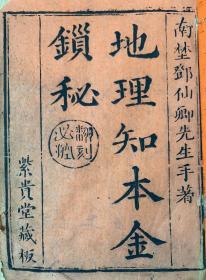 南埜鄧仙卿先生手著
地理知本金
鎖秘
翻刻必究
紫貴堂藏板